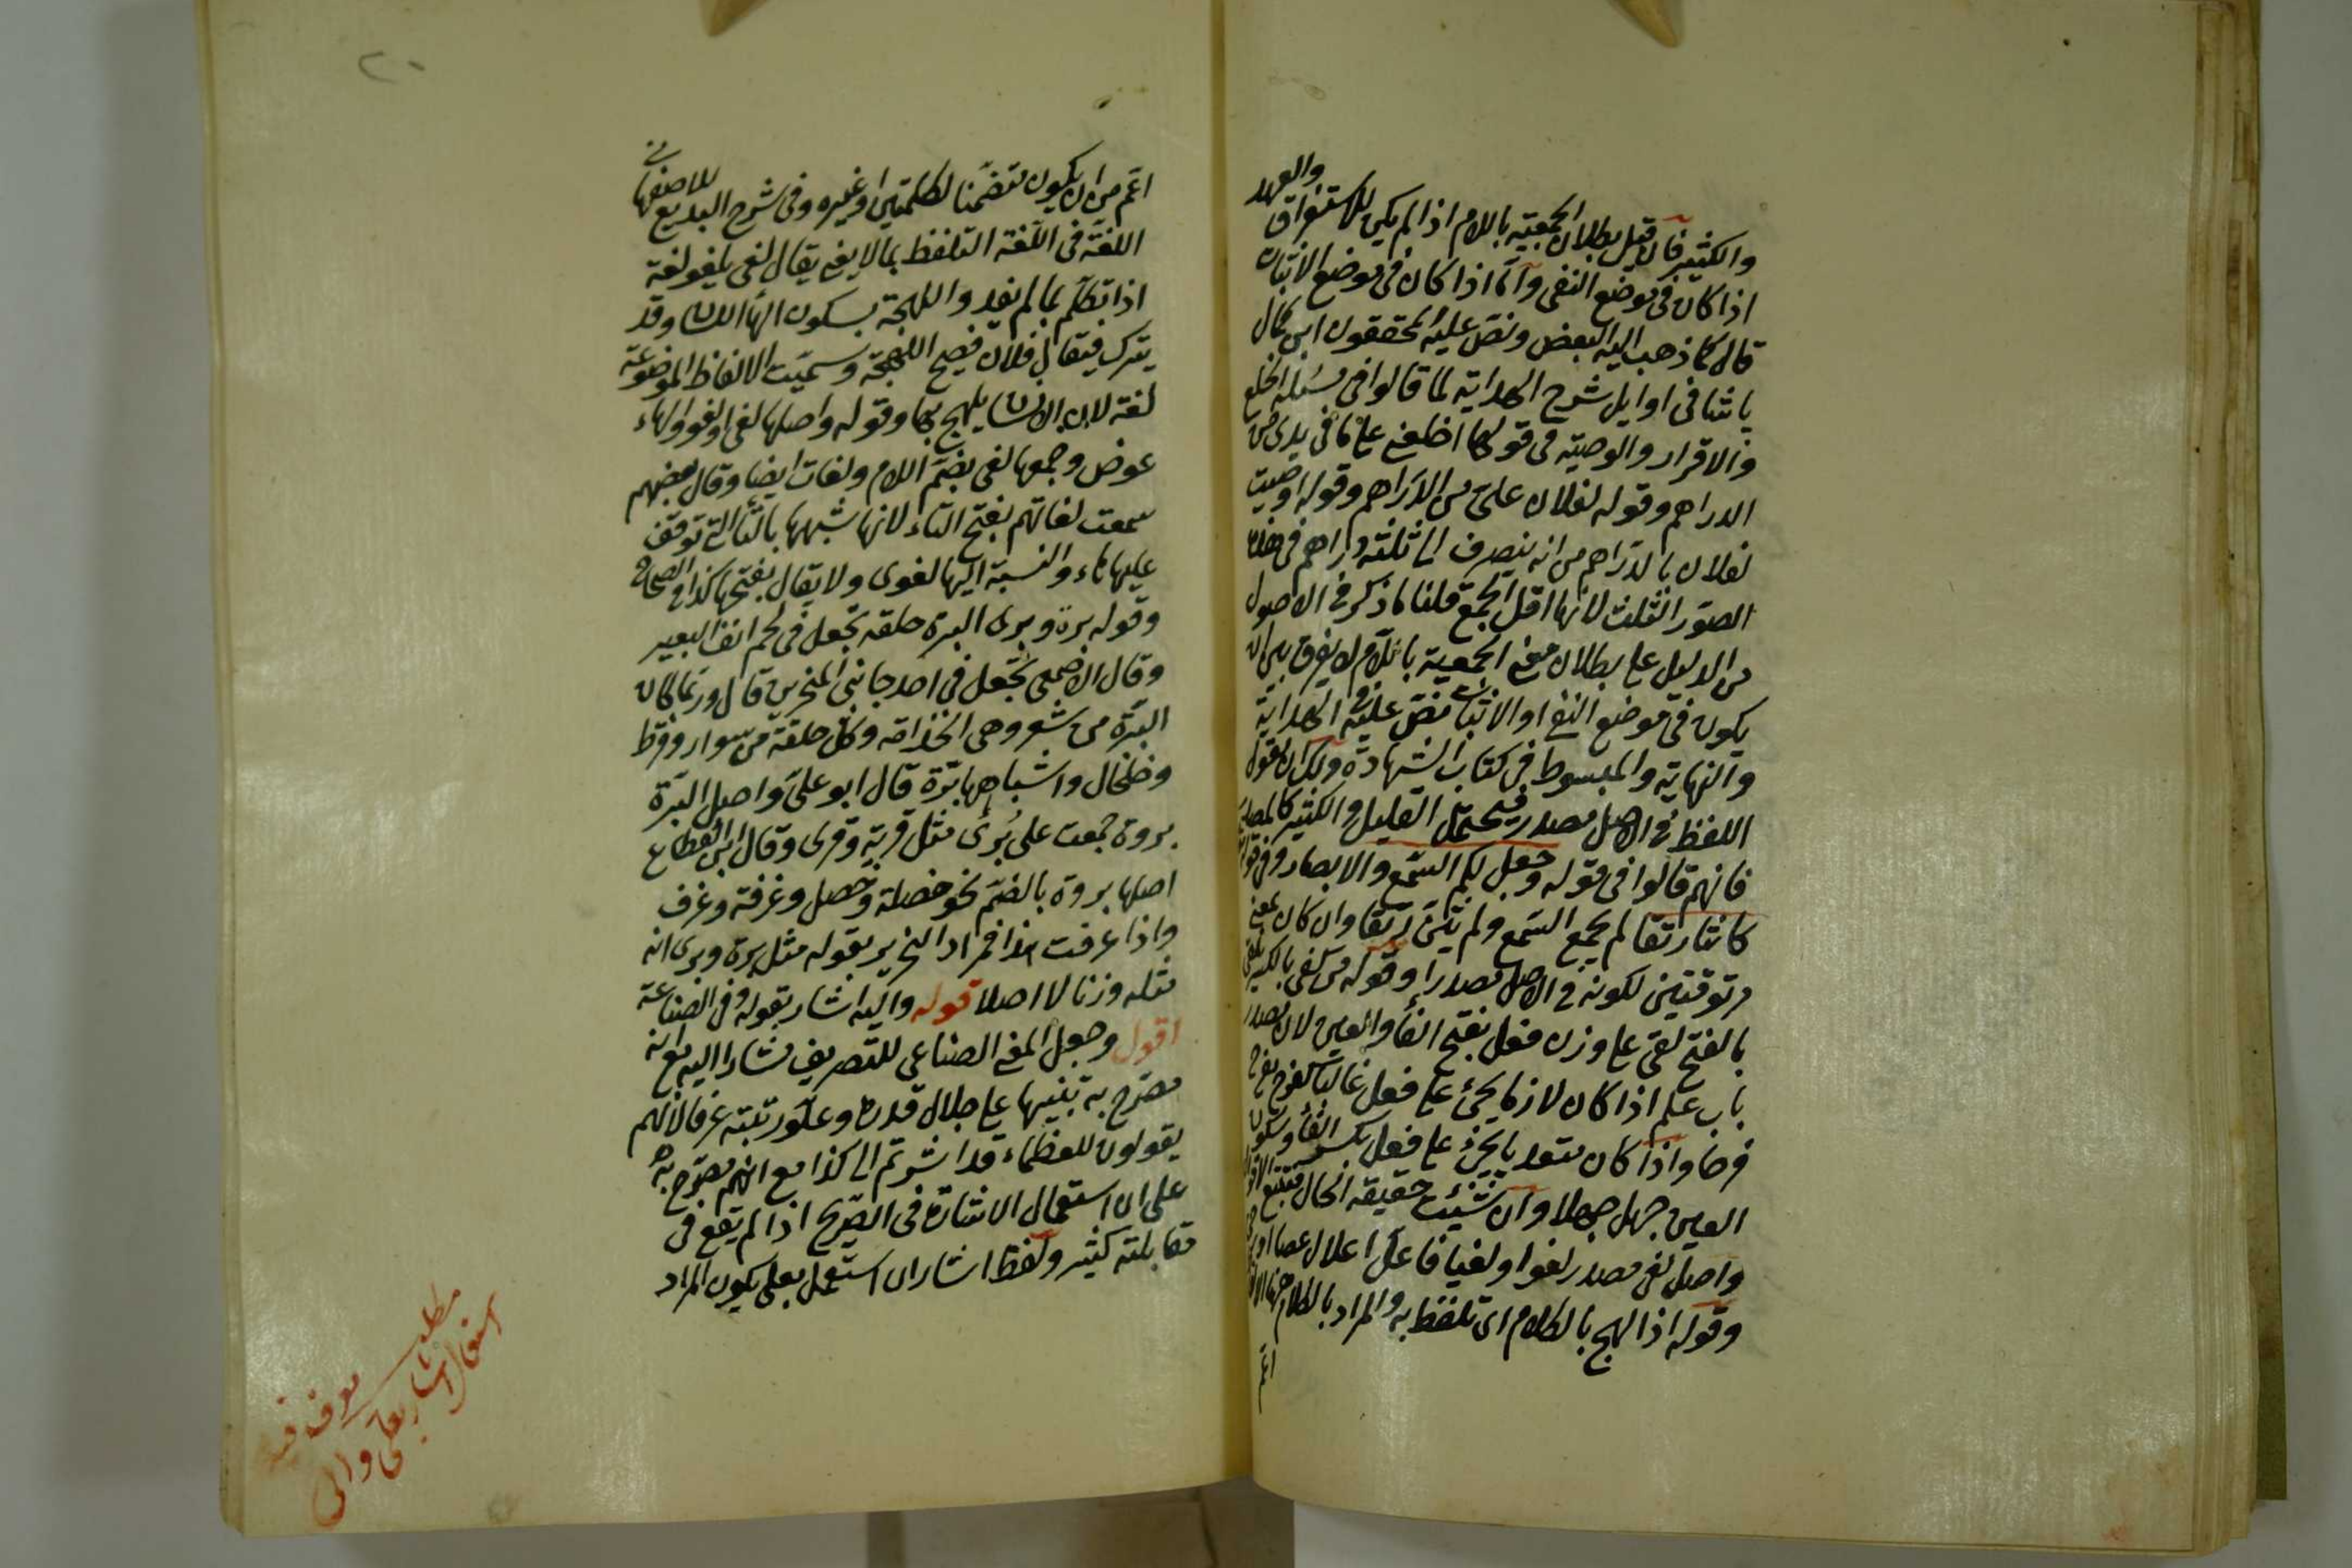 والكثير فان قيل بطلان الجمعية باللام اذا لم يكن للاستغراق والعهد
اذا كان في موضع النفي واما اذا كان في موضع الاثبات
قال كما ذهب اليه البعض ونص عليه المحققون ابن كمال
پاشا في اوايل شرح الهداية لما قالوا في مسئلة الخلع
والاقرار والوصية في قولها اخلعني على ما في يدي من
الدراهم وقوله لفلان على من الدراهم وقوله اوصيت
لفلان بالدراهم من انه ينصرف الى ثلثة دراهم في هذه
الصور الثلث لانها اقل الجمع قلنا ما ذكر في الاصول
من الدليل على بطلان معنى الجمعية باللام لا يفرق بين ان
يكون في موضع النفي او الاثبات نص عليه في الهداية
والنهاية والمبسوط في كتاب الشهادة ولك ان تقول
اللفظ في الاصل مصدر فيحتمل القليل والكثير كالمصادر
فانهم قالوا في قوله وجعل لكم السمع والابصار وفي قوله
كانتا رتقا لم يجمع السمع ولم يثن رتقا وان كان بمعنى
مرتوقتين لكونه في الاصل مصدرا وقوله من لغي بالكسر يلغى
بالفتح لغي على وزن فعل بفتح الفاء والعين لان مصدر
باب علم اذا كان لازما يجئ على فعل غالبا كفرح يفرح
فرحا واذا كان متعديا يجئ على فعل بكسر الفاء وسكون
العين جهل جهلا وان شئت حقيقة الحال فتتبع
واصل لغى مصدر لغوا ولغيا فاعل اعلال عصا
وقوله اذا لهج بالكلام اى تلفظ به والمراد بالكلام
اعم
٢٠
اعم من ان يكون متضمنا لكلمتين او غيره وفي شرح البديع للاصفهاني
اللغة في اللغة التلفظ بما لا يفيد يقال لغى يلغو لغة
اذا تكلم بما لم يفد واللهجة بسكون الهاء اللسان وقد
يترك فيقال فلان فصيح اللهجة وسميت الالفاظ الموضوعة
لغة لان الانسان يلهج بها وقوله واصلها لغي او لغو والهاء
عوض وجمعها لغى بضم اللام ولغات ايضا وقال بعضهم
سمعت لغاتهم بفتح التاء لانها شبهها بالتاء التي توقف
عليها بالهاء والنسبة اليها لغوى ولا يقال بفتحها كذا في الصحاح
وقوله برة وبرى البرة حلقة تجعل في لحم انف البعير
وقال الاصمعي تجعل في احد جانبي المنخرين قال وربما كان
البرة من شعر وهي الخزامة وكل حلقة من سوار وقرط
وخلخال واشباهها برة قال ابو على واصل البرة
بروة جمعت على برى مثل قرية وقرى وقال ابن القطاع
اصلها بروة بالضم نحو خصلة وخصل وغرفة وغرف
واذا عرفت هذا فمراد النحرير بقوله مثل برة وبرى انه
مثله وزنا لا اصلا قوله واليه اشار بقوله وفي الصناعة
اقول وجعل المعنى الصناعي للتصريف مشارا اليه مع انه
مصرح به تنبيها على جلال قدره وعلو رتبته عرفا لانهم
يقولون للعظماء قد اشرتم الى كذا مع انهم مصرح به
على ان استعمال الاشارة في الصريح اذا لم يقع في
مقابلته كثير ولفظ اشار ان استعمل بعلى يكون المراد
مطلب
استعمال اشار بعلى والى